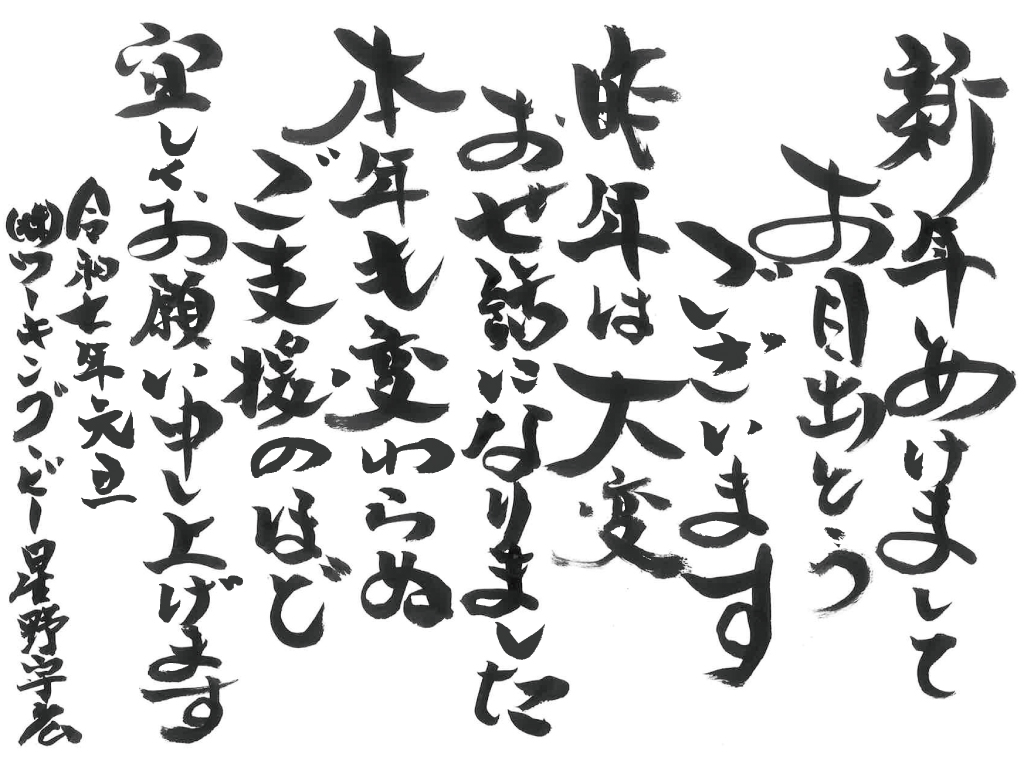 新年めけまして
お目出とう
ございます
昨年は大変
お世話になりました
本年も変わらぬ
ご支援のほど
宜しくお願い申し上げます
令和七年元旦
㈱ワーキングビー星野